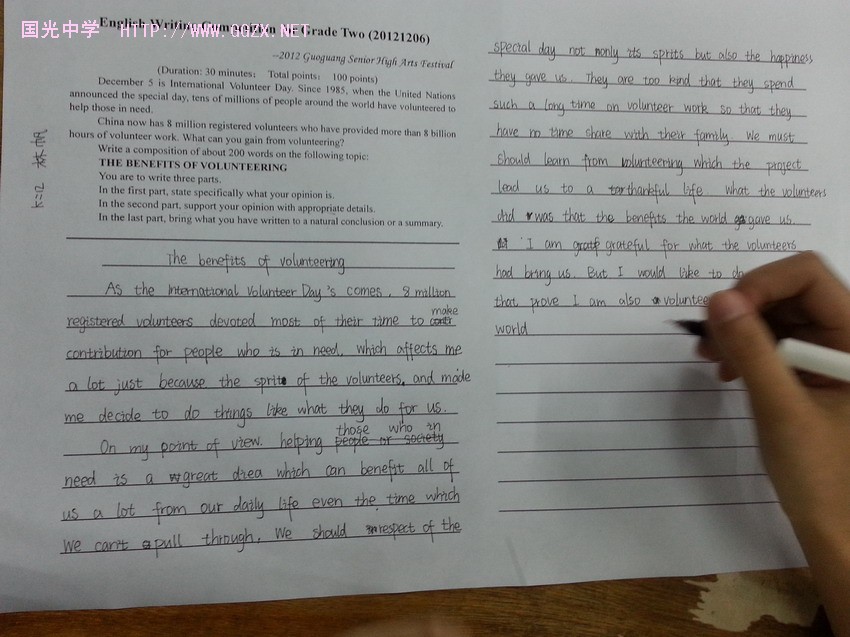 国光中学 HTTP://WWW.GGZX.NET
English Writing Competition for Grade Two (20121206)
--2012 Guoguang Senior High Arts Festival
(Duration: 30 minutes; Total points: 100 points)
December 5 is International Volunteer Day. Since 1985, when the United Nations
announced the special day, tens of millions of people around the world have volunteered to
help those in need.
China now has 8 million registered volunteers who have provided more than 8 billion
hours of volunteer work. What can you gain from volunteering?
Write a composition of about 200 words on the following topic:
THE BENEFITS OF VOLUNTEERING
You are to write three parts.
In the first part, state specifically what your opinion is.
In the second part, support your opinion with appropriate details.
In the last part, bring what you have written to a natural conclusion or a summary.
The benefits of volunteering
As the International Volunteer Day's comes, 8 million
registered volunteers devoted most of their time to make
contribution for people who is in need, which affects me
a lot just because the sprit of the volunteers, and made
me decide to do things like what they do for us.
On my point of view, helping people or society those who in
need is a great diea which can benefit all of
us a lot from our daily life even the time which
we can't pull through. We should respect of the
special day not only its sprits but also the happiness
they gave us. They are too kind that they spend
such a long time on volunteer work so that they
have no time share with their family. We must
should learn from volunteering which the project
lead us to a thankful life. What the volunteers
did was that the benefits the world gave us.
I am grateful for what the volunteers
had bring us. But I would like to do
that, prove I am also volunteer
world